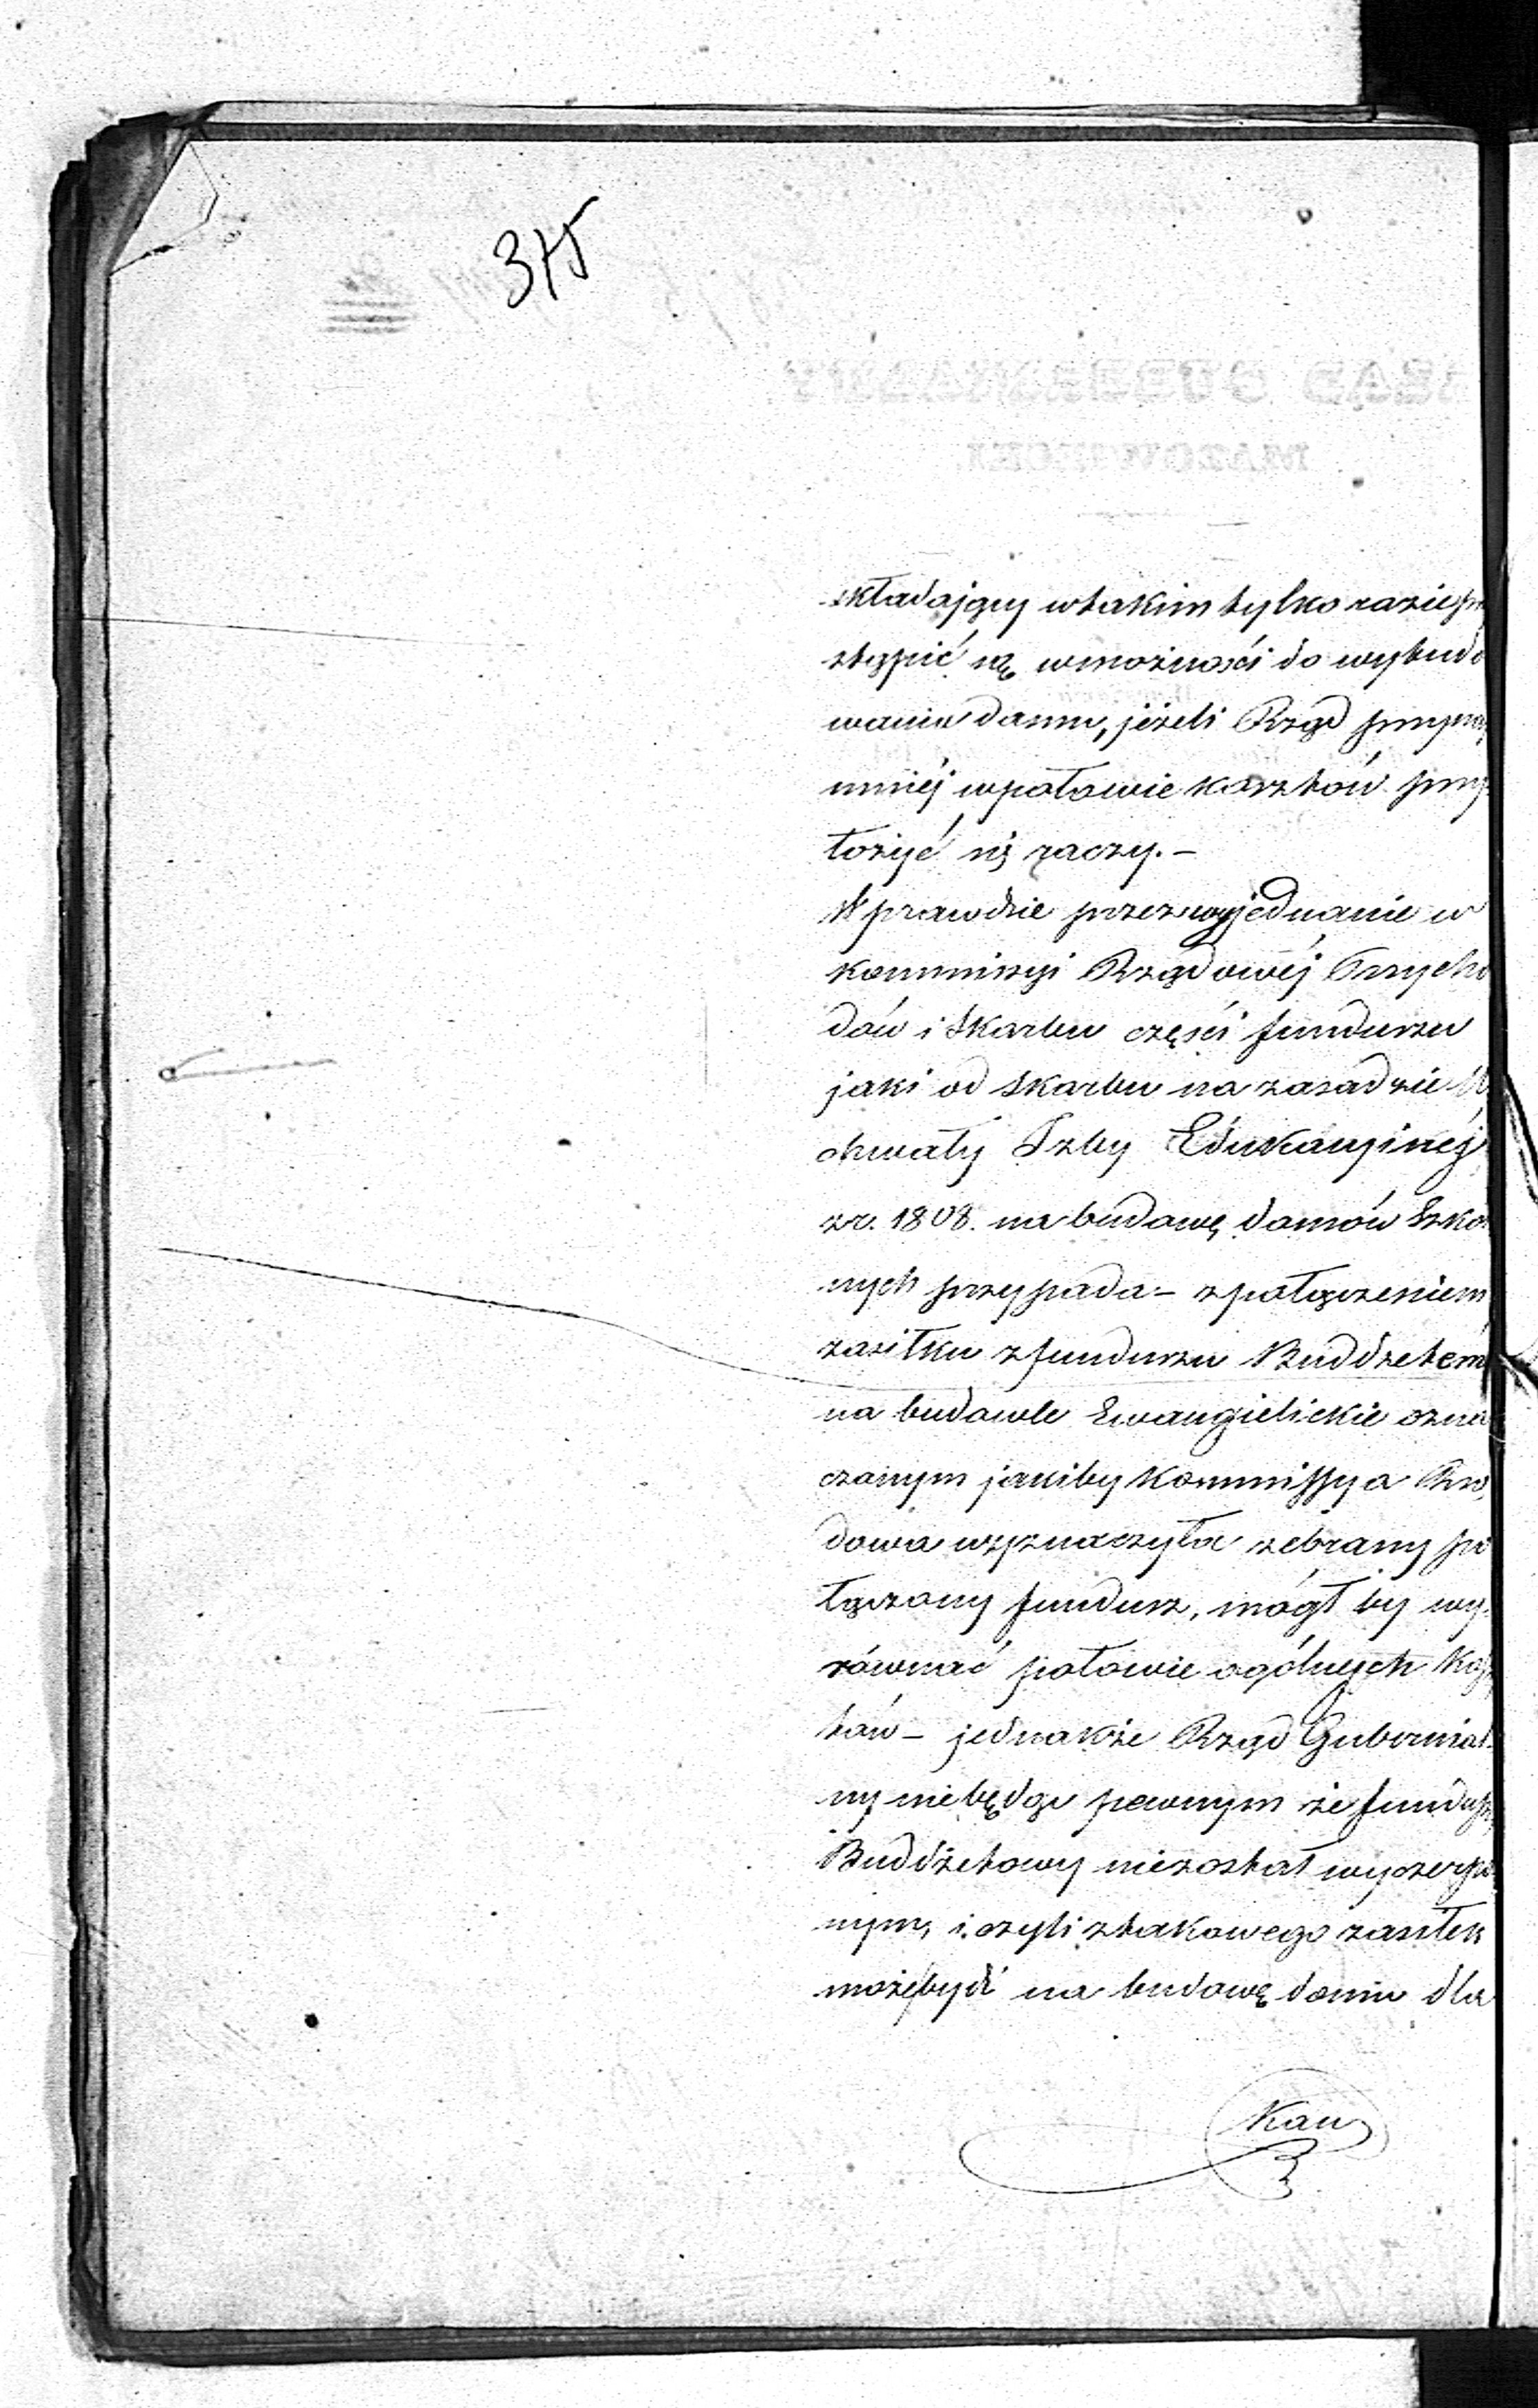 375
składający wtakim tylko razie
stąpić są wmożności do wybudo
wania domu, jeżeli Rząd przynaj
mniéj wpołowie kosztów przy
łożyć się raczy. –
Wprawdzie przez wyjednanie w
Kommissyi Rządowéj Przycho
dów i Skarbu części funduszu
jaki od Skarbu na zasadzie U
chwały Izby Edukacyinéj
zr. 1808. na budowę domów Szkol
nych przypada – zpołączeniem
zasiłku zfunduszu Buddżetem
na budowle Ewangielickie ozna
czonym jakiby Kommissya Rzą
dowa wyznaczyła zebrany po
łączony fundusz, mógł by wy
równać połowie ogólnych kosz
tów – jednakże Rząd Gubernial
ny niebędąc pewnym że fundusz
Buddżetowy niezostał wyczerpa
nym, i czyli ztakowego zasiłek
może być na budowę domu dla